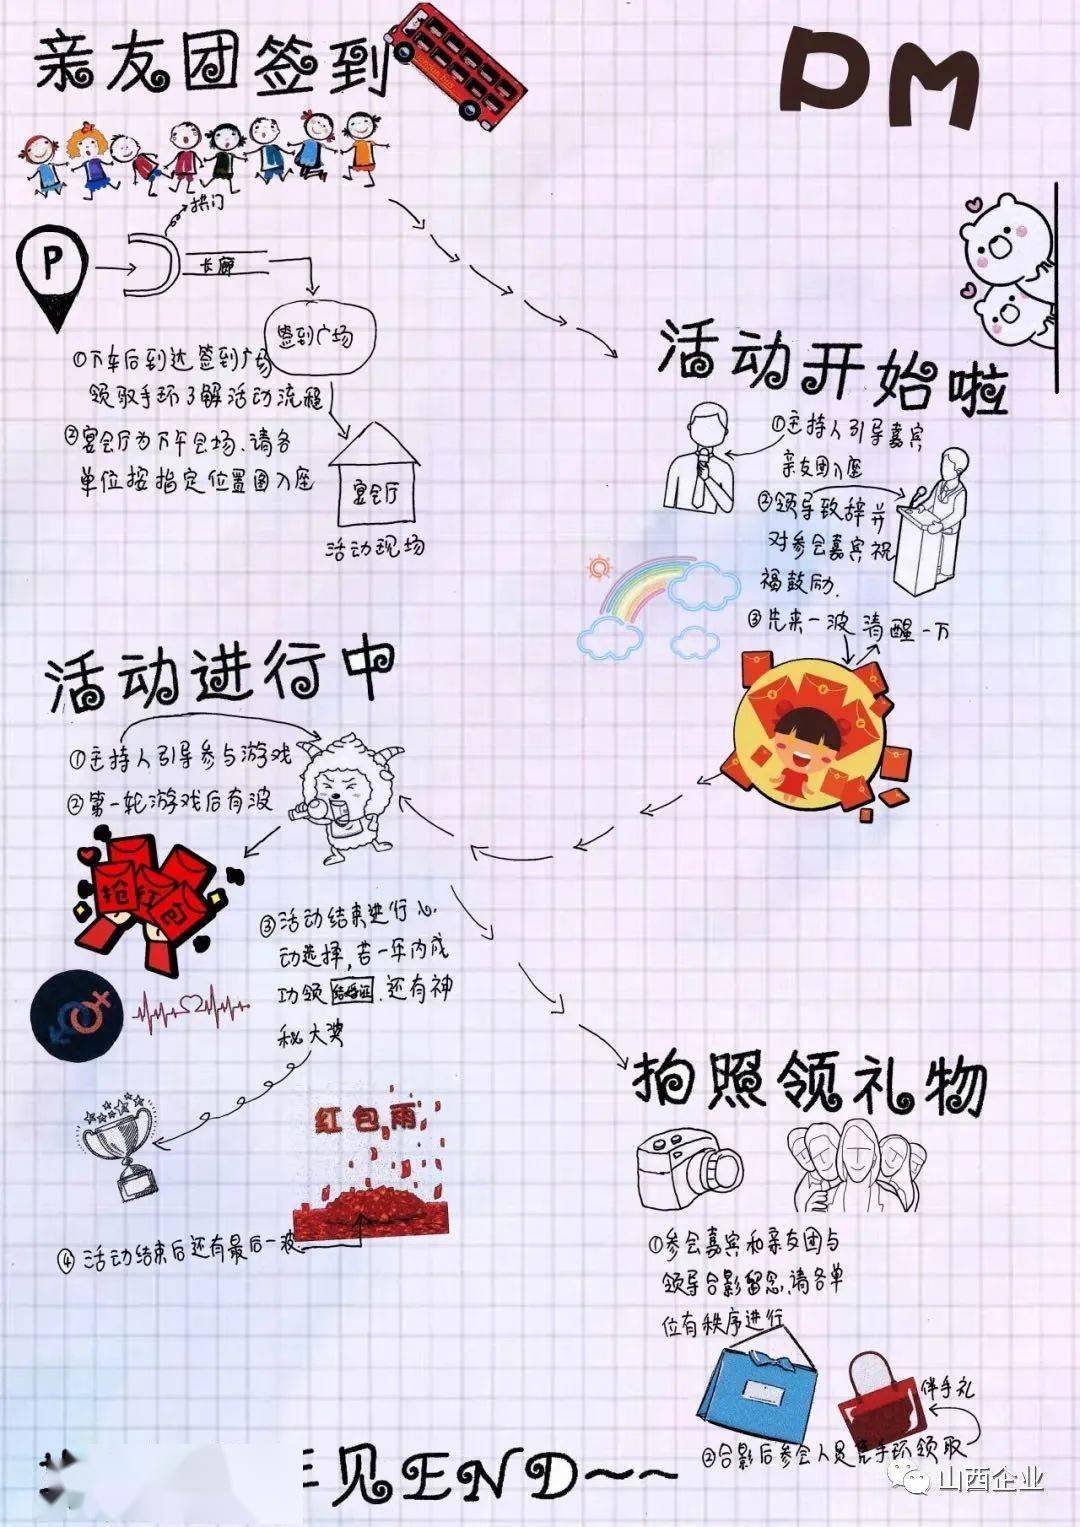 亲友团签到
PM
拱门
P
长廊
签到广场
①下车后到达签到广场
领取手环了解活动流程
②宴会厅为下午会场.请各
单位按指定位置图入座
宴会厅
活动现场
活动开始啦
①主持人引导嘉宾
亲友团入座
②领导致辞并
对参会嘉宾祝
福鼓励.
③先来一波清醒一下
活动进行中
①主持人引导参与游戏
②第一轮游戏后有波
抢红包
③活动结束进行心
动选择,若一年内成
功领结婚证.还有神
秘大奖
红包雨
④活动结束后还有最后一波
拍照领礼物
①参会嘉宾和亲友团与
领导合影留念.请各单
位有秩序进行
伴手礼
②合影后参会人员凭手环领取
见END~~
山西企业